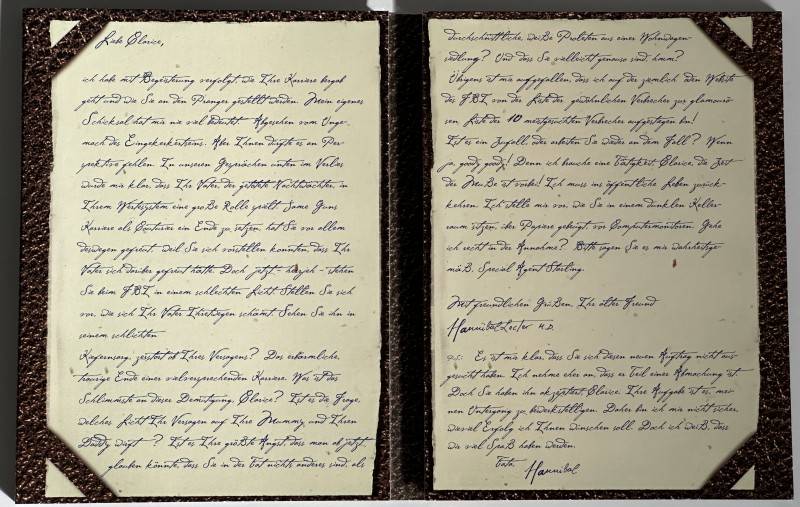 Liebe Clarice,
ich habe mit Begeisterung verfolgt, wie Ihre Karriere bergab
geht und wie Sie an den Pranger gestellt werden. Mein eigenes
Schicksal hat mir nie viel bedeutet. Abgesehen vom Unge-
mach des Eingekerkertseins. Aber Ihnen dürfte es an Per
spektive fehlen. In unseren Gesprächen unten im Verlies
wurde mir klar, dass Ihr Vater, der getötete Nachtwächter, in
Ihrem Wertesystem eine große Rolle spielt. Jame Gums
Karriere als Couturier ein Ende zu setzen, hat Sie vor allem
deswegen gefreut, weil Sie sich vorstellen konnten, dass Ihr
Vater sich darüber gefreut hätte. Doch jetzt - herrjeh - stehen
Sie beim FBI in einem schlechten Licht. Stellen Sie sich
vor, wie sich Ihr Vater Ihretwegen schämt. Sehen Sie ihn in
seinem schlichten
Kiefernsarg, zerstört ob Ihres Versagens? Das erbärmliche,
traurige Ende einer vielversprechenden Karriere. Was ist das
Schlimmste an dieser Demütigung, Clarice? Ist es die Frage,
welches Licht Ihr Versagen auf Ihre Mummy und Ihren
Daddy wirft ? Ist es Ihre größte Angst, dass man ab jetzt
glauben könnte, dass Sie in der Tat nichts anderes sind, als
durchschnittliche, weiße Proleten aus einer Wohnwagen-
siedlung? Und dass Sie vielleicht genauso sind, hmm?
Übrigens ist mir aufgefallen, dass ich auf der ziemlich öden Website
des FBI von der Liste der gewöhnlichen Verbrecher zur glamourö-
sen Liste der 10 meistgesuchten Verbrecher aufgestiegen bin!
Ist es ein Zufall, oder arbeiten Sie wieder an dem Fall? Wenn
ja, goody goody! Denn ich brauche eine Tätigkeit Clarice, die Zeit
der Muße ist vorbei! Ich muss ins öffentliche Leben zurück-
kehren. Ich stelle mir vor, wie Sie in einem dunklen Keller-
raum sitzen, über Papiere gebeugt, vor Computermonitoren. Gehe
ich recht in der Annahme? Bitte sagen Sie es mir wahrheitsge-
mäß, Special Agent Starling.
Mit freundlichen Grüßen, Ihr alter Freund
Hannibal Lecter M.D.
P.S.: Es ist mir klar, dass Sie sich diesen neuen Auftrag nicht aus-
gesucht haben. Ich nehme eher an, dass er Teil einer Abmachung ist.
Doch Sie haben ihn akzeptiert, Clarice. Ihre Aufgabe ist es, mei-
nen Untergang zu bewerkstelligen. Daher bin ich mir nicht sicher,
wieviel Erfolg ich Ihnen wünschen soll. Doch ich weiß, dass
wir viel Spaß haben werden.
Tata,
Hannibal